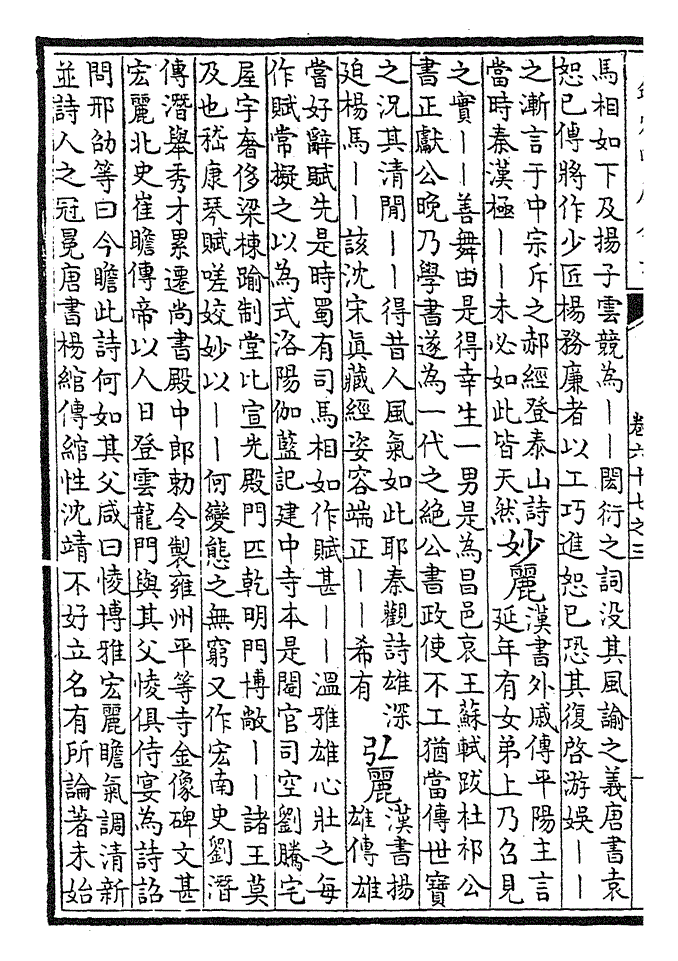 卷六十七之三
馬相如下及揚子雲競為——閎衍之詞没其風諭之義唐書袁
恕已傳將作少匠楊務廉者以工巧進恕已恐其復啓游娱——
之漸言于中宗斥之郝經登泰山詩
當時秦漢極——未必如此皆天然
妙麗
漢書外戚傳平陽主言
延年有女弟上乃召見
之實——善舞由是得幸生一男是為昌邑哀王蘇軾跋杜祁公
書正獻公晚乃學書遂為一代之絶公書政使不工猶當傳世寶
之况其清閒——得昔人風氣如此耶秦觀詩雄深
廹楊馬——該沈宋眞藏經姿容端正——希有
弘麗
漢書揚
雄傳雄
嘗好辭賦先是時蜀有司馬相如作賦甚——温雅雄心壯之每
作賦常擬之以為式洛陽伽藍記建中寺本是閹官司空劉騰宅
屋宇奢侈梁棟踰制堂比宣光殿門匹乾明門博敞——諸王莫
及也嵇康琴賦嗟姣妙以——何變態之無窮又作宏南史劉潛
傳潛舉秀才累遷尚書殿中郎勅令製雍州平等寺金像碑文甚
宏麗北史崔瞻傳帝以人日登雲龍門與其父㥄俱侍宴為詩詔
問邢劭等曰今瞻此詩何如其父咸曰㥄博雅宏麗瞻氣調清新
並詩人之冠冕唐書楊綰傳綰性沈靖不好立名有所論著未始